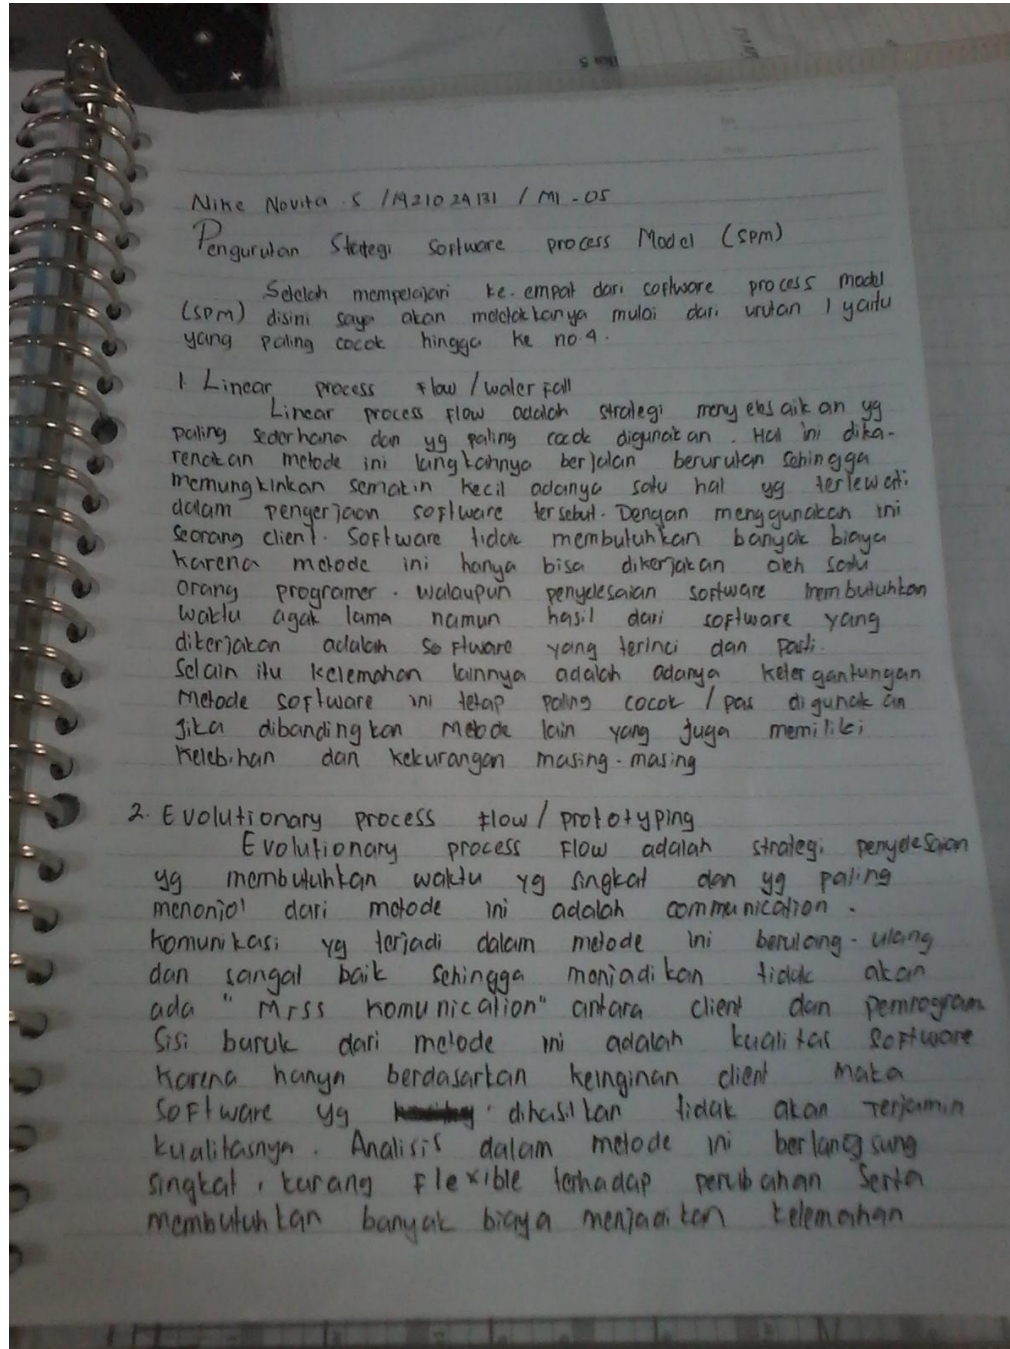 Nike Novita . S / 1421024131 / MI - 05
Pengurutan Strategi Software process Model (SPM)
Setelah mempelajari ke-empat dari software process model
(SPM) disini saya akan meletakkanya mulai dari urutan 1 yaitu
yang paling cocok hingga ke no 4.
1. Linear process flow / waterfall
Linear process flow adalah strategi menyelesaikan yg
paling sederhana dan yg paling cocok digunakan. Hal ini dika-
renakan metode ini langkahnya berjalan berurutan sehingga
memungkinkan semakin kecil adanya satu hal yg terlewati
dalam pengerjaan software tersebut. Dengan menggunakan ini
seorang client. Software tidak membutuhkan banyak biaya
karena metode ini hanya bisa dikerjakan oleh satu
orang programer. walaupun penyelesaian software membutuhkan
waktu agak lama namun hasil dari software yang
dikerjakan adalah software yang terinci dan pasti.
Selain itu kelemahan lainnya adalah adanya ketergantungan
Metode software ini tetap paling cocok / pas digunakan
Jika dibandingkan Metode lain yang juga memiliki
kelebihan dan kekurangan masing-masing
2. Evolutionary process flow / prototyping
Evolutionary process flow adalah strategi penyelesaian
yg membutuhkan waktu yg singkat dan yg paling
menonjol dari metode ini adalah communication.
Komunikasi yg terjadi dalam metode ini berulang-ulang
dan sangat baik sehingga menjadikan tidak akan
ada "Mrss Komunication" antara client dan pemrogram
Sisi buruk dari metode ini adalah kualitas software
karena hanya berdasarkan keinginan client maka
software yg dihasilkan tidak akan terjamin
kualitasnya. Analisis dalam metode ini berlangsung
singkat, kurang flexible terhadap perubahan serta
membutuhkan banyak biaya menjadikan kelemahan